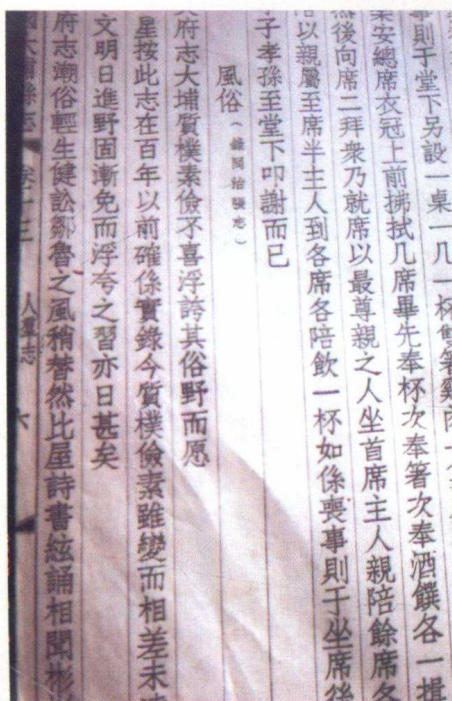 事則于堂下另設一桌一几一杯雙箸雞肉
業安總席衣冠上前拂拭几席畢先奉杯次奉箸次奉酒饌各一揖
然後向席二拜衆乃就席以最尊親之人坐首席主人親陪餘席各
以親屬至席半主人到各席各陪飲一杯如係喪事則于坐席後
子孝孫至堂下叩謝而已
風俗(錄同治張志)
府志大埔質樸素儉不喜浮誇其俗野而愿
星按此志在百年以前確係實錄今質樸儉素雖變而相差未
文明日進野固漸免而浮夸之習亦日甚矣
府志潮俗輕生健訟鄒魯之風稍替然比屋詩書絃誦相聞彬
大埔縣志 卷十三 人羣志 六